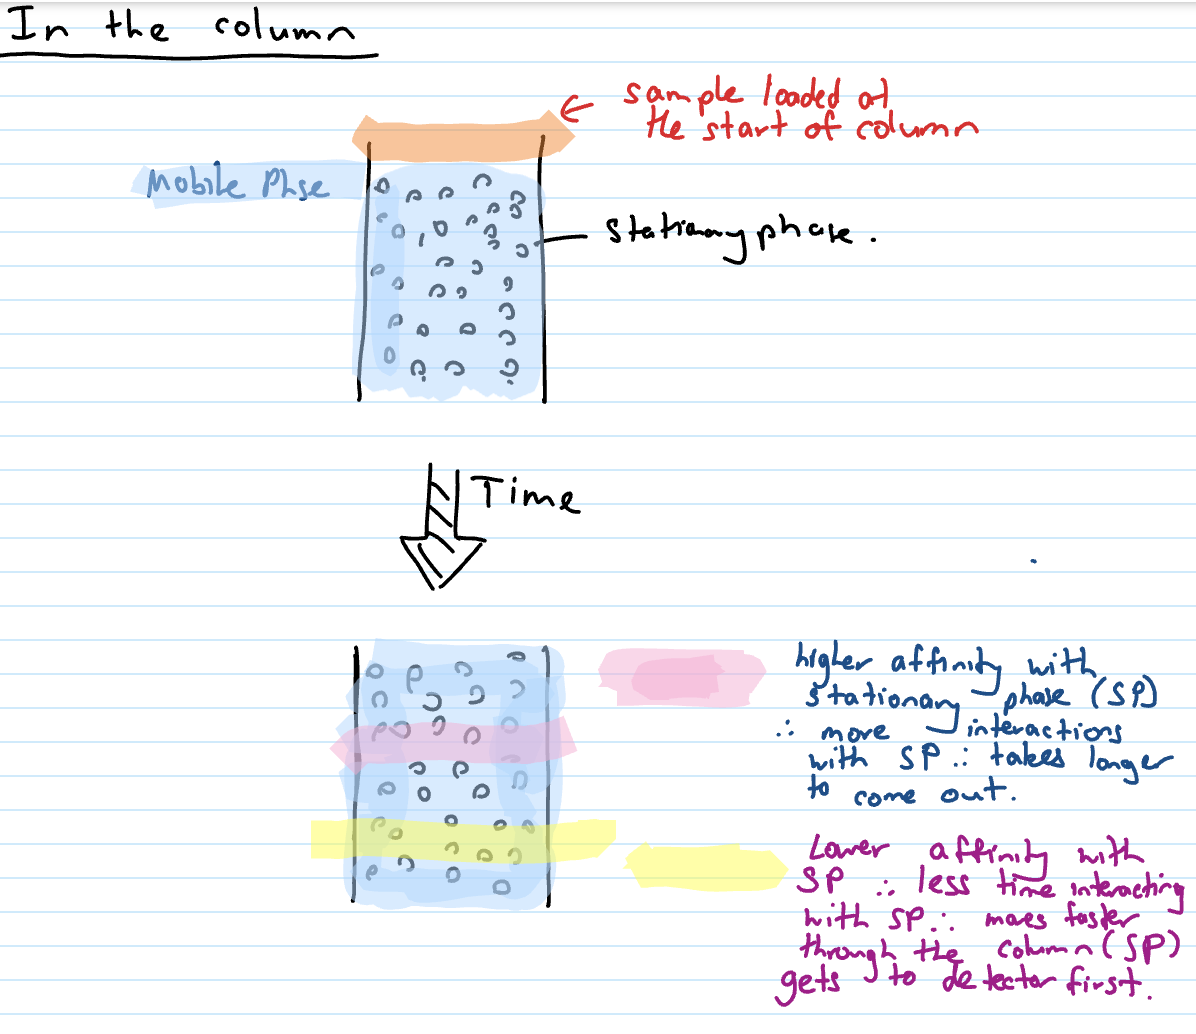 In the column
sample loaded at
the start of column
Mobile Phse
Stationary phase.
Time
higher affinity with
stationary phase (SP)
∴ more interactions
with SP ∴ takes longer
to come out.
Lower affinity with
SP ∴ less time interacting
with SP ∴ moves faster
through the column (SP)
gets to detector first.